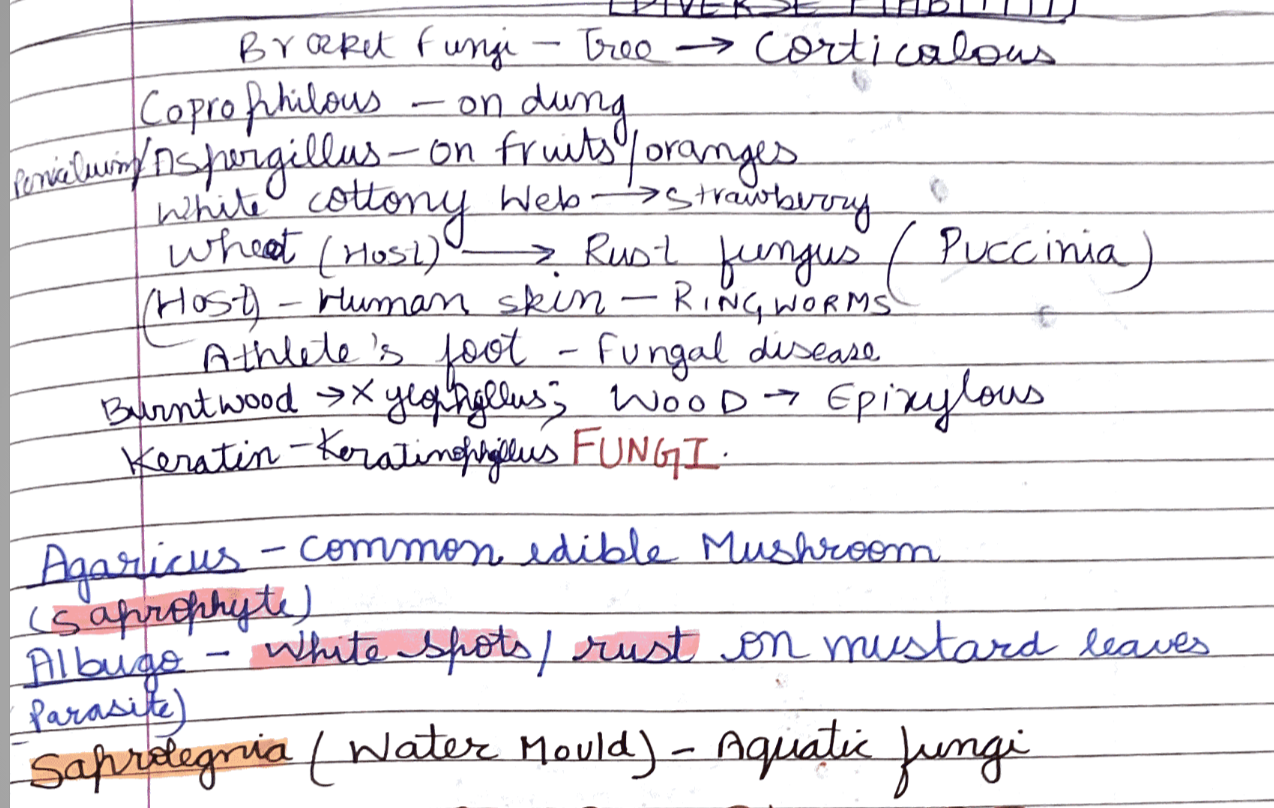 DIVERSE HABITAT
Bracket fungi – Tree → Corticalous
Coprophilous – on dung
Penicilium/Aspergillus – on fruits/oranges
White cottony Web → Strawberry
Wheat (Host) → Rust fungus (Puccinia)
(Host) – Human skin – RINGWORMS
Athlete's foot – fungal disease
Burntwood → Xylophyllus; WOOD → Epixylous
Keratin – Keratinophyllus FUNGI.
Agaricus – Common edible Mushroom
(saprophyte)
Albugo – White spots/ rust on mustard leaves
Parasite)
Saprolegnia (Water Mould) – Aquatic fungi